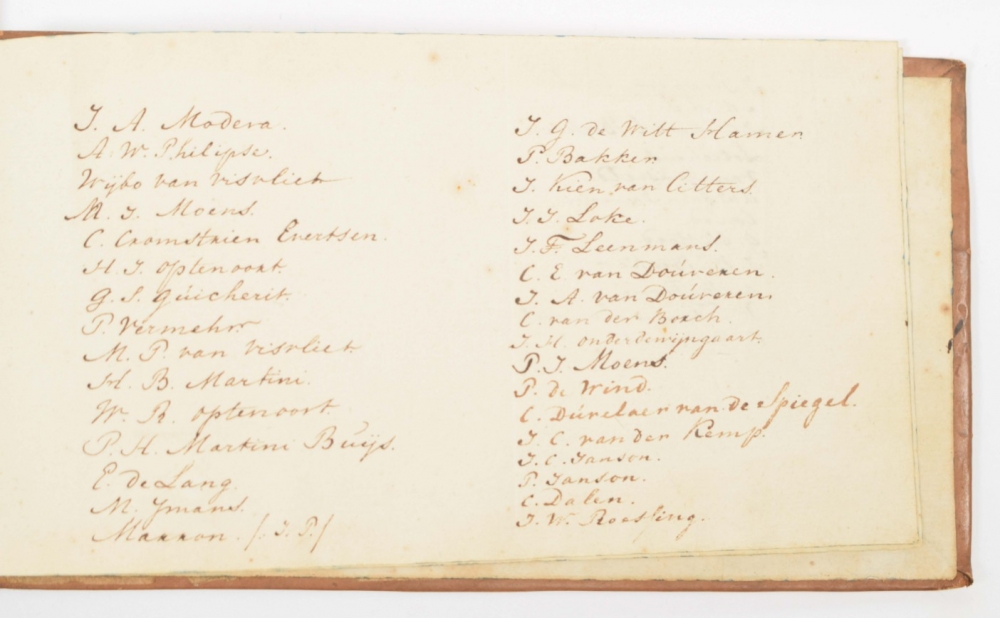 J. A. Modera.
A. W. Philipse.
Wijbo van visvliet
M. J. Moens.
C. Cromstrien Evertsen.
H. J. optenoort.
G. S. gúicherit.
P. Vermehr
M. P. van visvliet.
H. B. Martini.
W. R. optenoort.
P. H. Martini Buijs.
E. de Lang.
M. Ymans.
Marron. /. J. P./
J. G. de Witt Hamer
P. Bakker
J. Kien van Citters.
J. J. Loke.
J. F. Leenmans.
C. E van Doúveren.
J. A. van Doúveren.
C. van der Bosch.
J. H. onderdewijngaart.
P. J. Moens.
P. de Wind.
C. Dúvelaer van de Spiegel.
J. C. van der Kemp.
J. C. Janson.
P. Janson.
C. Dalen.
J. W. Roessing.